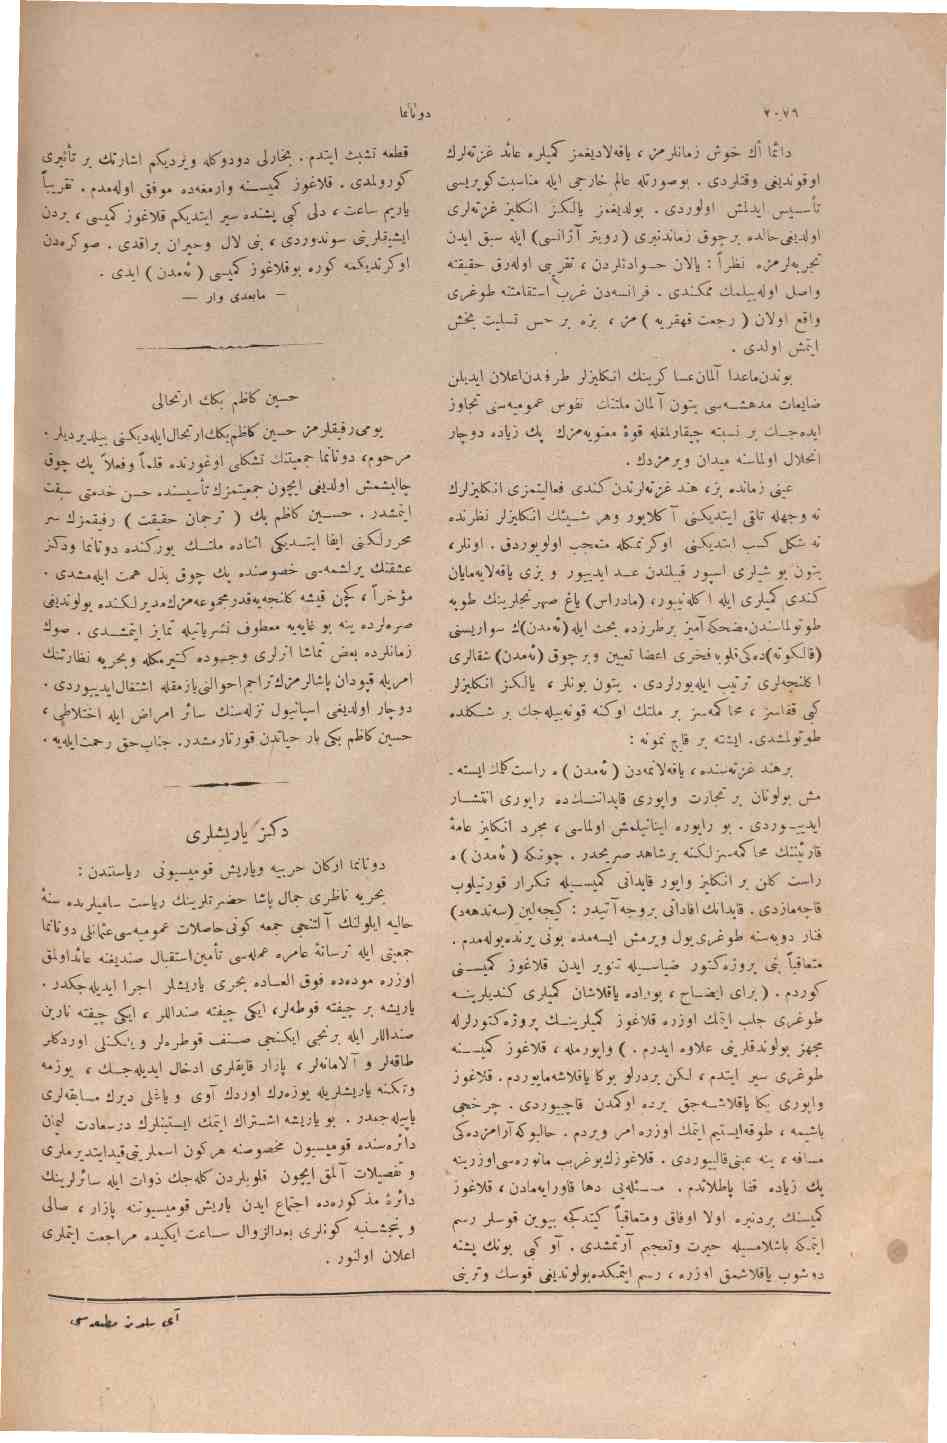 ٢٠٧٩
دوناما
دائما اك خوش زمانلرمز ، ياقه لاديغمز كميلره عائد غزته لرك
اوقونديغى وقتلردى . بوصورتله عالم خارجى ايله مناسبت كوپريسى
تأسيس ايدلمش اولوردى . بولديغمز يالكز انكليز غزته لرى
اولديغى حالده برچوق زماندنبرى ( رويتر آژانسى ) ايله سبق ايدن
تجربه لرمزه نظراً : يالان حوادثلردن ، تقريبى اوله رق حقيقته
واصل اوله بيلمك ممكندى . فرانسه دن غرب استقامتنه طوغرى
واقع اولان ( رجعت قهقريه ) مز ، بزه بر حس تسليت بخش
ايتمش اولدى .
بوندن ماعدا آلمان عساكرينك انكليزلر طرفندن اعلان ايديلن
ضايعات مدهشه سى بتون آلمان ملتنك نفوس عموميه سنى تجاوز
ايده جك بر نسبته چيقارلمغله قوهٔ معنويه مزك پك زياده دوچار
انحلال اولماسنه ميدان ويرمزدك .
عينى زمانده بز ، هند غزته لرندن كندى فعاليتمزى انكليزلرك
نه وجهله تلقى ايتديكنى آكلايور وهر شيئك انكليزلر نظرنده
نه شكل كسب ايتديكنى اوكرنمكله متعجب اولويوردق . اونلر ،
بتون بو شيلرى اسپور قبيلندن عد ايدييور و بزى ياقه لايه مايان
كندى كميلرى ايله اكله نييور ، (مادراس) ياغ صهرنجلرينك طوپه
طوتولماسندن مضحكه آميز برطرزده بحث ايله (ئه مدن)ك سواريسنى
(قالكوته) ده كى قلوبه فخرى اعضا تعيين وبرچوق (ئه مدن) شقالرى
اكلنجه لرى ترتيب ايله يورلردى . بتون بونلر ، يالكز انكليزلر
كبى قفاسز ، محاكمه سز بر ملتك اوكنه قونه بيله جك بر شكلده
طوتولمشدى . ايشته بر قاچ نمونه :
برهند غزته سنده ، ياقه لانمه دن ( ئه مدن ) ه راست كلمك ايسته -
مش بولونان بر تجارت واپورى قاپداننك ده راپورى انتشار
ايدييوردى . بو راپوره اينانيلمش اولماسى ، مجرد انكليز عامهٔ
قارئيننك محاكمه سزلكنه برشاهد صريحدر . چونكه ( ئه مدن ) ه
راست كلن بر انكليز واپور قاپدانى كميسيله تكرار قورتيلوب
قاچه مازدى . قاپدانك افاداتى بروجه آتيدر : كيجه لين (سه ندهه د)
فنار دوبه سنه طوغرى يول ويرمش ايسه مده بونى يرنده بوله مدم .
متعاقباً بنى پروژه كتور ضياسيله تنوير ايدن قلاغوز كميسنى
كوردم . ( براى ايضاح ، بوراده ياقلاشان كميلرى كنديلرينه
طوغرى جلب ايتمك اوزره قلاغوز كميلرينك پروژه كتورلرله
مجهز بولوندقلرينى علاوه ايدرم . ) واپورمله ، قلاغوز كميسنه
طوغرى سير ايتدم ، لكن بردرلو بوكا ياقلاشه مايوردم . قلاغوز
واپورى بكا ياقلاشه جق يرده اوكمدن قاچييوردى . چرخجى
باشيمه ، طوقه ايستيم ايتمك اوزره امر ويردم . حالبوكه آرامزده كى
مسافه ، ينه عينى قالييوردى . قلاغوزك بوغريب مانوره سى اوزرينه
پك زياده قفا پاطلاتدم . مسئله يى دها قاورايه مادن ، قلاغوز
كميسنك بردنبره اولا اوفاق ومتعاقباً كيتدكجه بيوين قوسلر رسم
ايتمكه باشلامسيله حيرت وتعجبم آرتمشدى . آو كبى بونك پشنه
دوشوب ياقلاشمق اوزره ، رسم ايتمكده بولونديغى قوسك وترينى
قطعه تشبث ايتدم . بخارلى دودوكله ويرديكم اشارتك بر تأثيرى
كورولمدى . قلاغوز كميسنه وارمغه ده موفق اوله مدم . تقريباً
ياريم ساعت ، دلى كبى پشنده سير ايتديكم قلاغوز كميسى ، بردن
ايشيقلرينى سوندوردى ، بنى لال وحيران براقدى . صوكره دن
اوكرنديكمه كوره بوقلاغوز كميسى ( ئه مدن ) ايدى .
— مابعدى وار —
حسين كاظم بكك ارتحالى
يومى رفيقلرمز حسين كاظم بكك ارتحال ايله ديكنى بيلديرديلر .
مرحوم ، دوناما جمعيتنك تشكلى اوغورنده قلماً وفعلاً پك چوق
چاليشمش اولديغى ايچون جمعيتمزك تأسيسنده حسن خدمتى سبقت
ايتمشدر . حسين كاظم بك ( ترجمان حقيقت ) رفيقمزك سر
محررلكنى ايفا ايتديكى اثناده ملتك يوركنده دوناما ودكز
عشقنك يرلشمه سى خصوصنده پك چوق بذل همت ايله مشدى .
مؤخراً ، كچن قيشه كلنجه يه قدر مجموعه مزك مديرلكنده بولونديغى
صره لرده ينه بو غايه يه معطوف نشرياتيله تمايز ايتمشدى . صوك
زمانلرده بعض تماشا اثرلرى وجوده كتيرمكله وبحريه نظارتنك
امريله قپودان پاشالرمزك تراجم احوالنى يازمقله اشتغال ايدييوردى .
دوچار اولديغى اسپانيول نزله سنك سائر امراض ايله اختلاطى ،
حسين كاظم بكى بار حياتدن قورتارمشدر . جناب حق رحمت ايله يه .
دكز ياريشلرى
دوناما اركان حربيه وياريش قوميسيونى رياستندن :
بحريه ناظرى جمال پاشا حضرتلرينك رياست ساميلرنده سنهٔ
حاليه ايلولنك آلتنجى جمعه كونى حاصلات عموميه سى عثمانلى دوناما
جمعيتى ايله ترسانهٔ عامره عمله سى تأمين استقبال صنديغنه عائد اولمق
اوزره موده ده فوق العاده بحرى ياريشلر اجرا ايديله جكدر .
ياريشه بر چيفته قوطه لر ، ايكى چيفته صنداللر ، ايكى چيفته نارين
صنداللر ايله برنجى ايكنجى صنف قوطره لر و يلكنلى اوردكلر
طاقه لر و آلامانه لر ، پازار قايقلرى ادخال ايديله جك ، يوزمه
وتكنه ياريشلريله يوزه رك اوردك آوى و ياغلى ديرك مسابقه لرى
ياپيله جقدر . بو ياريشه اشتراك ايتمك ايستينلرك درسعادت ليمان
دائره سنده قوميسيون مخصوصنه هركون اسملرينى قيد ايتديرملرى
و تفصيلات آلمق ايچون قلوبلردن كله جك ذوات ايله سائرلرينك
دائرهٔ مذكوره ده اجتماع ايدن ياريش قوميسيوننه پازار ، صالى
و پنجشنبه كونلرى بعدالزوال ساعت ايكيده مراجعت ايتملرى
اعلان اولنور .
مطبعه سى